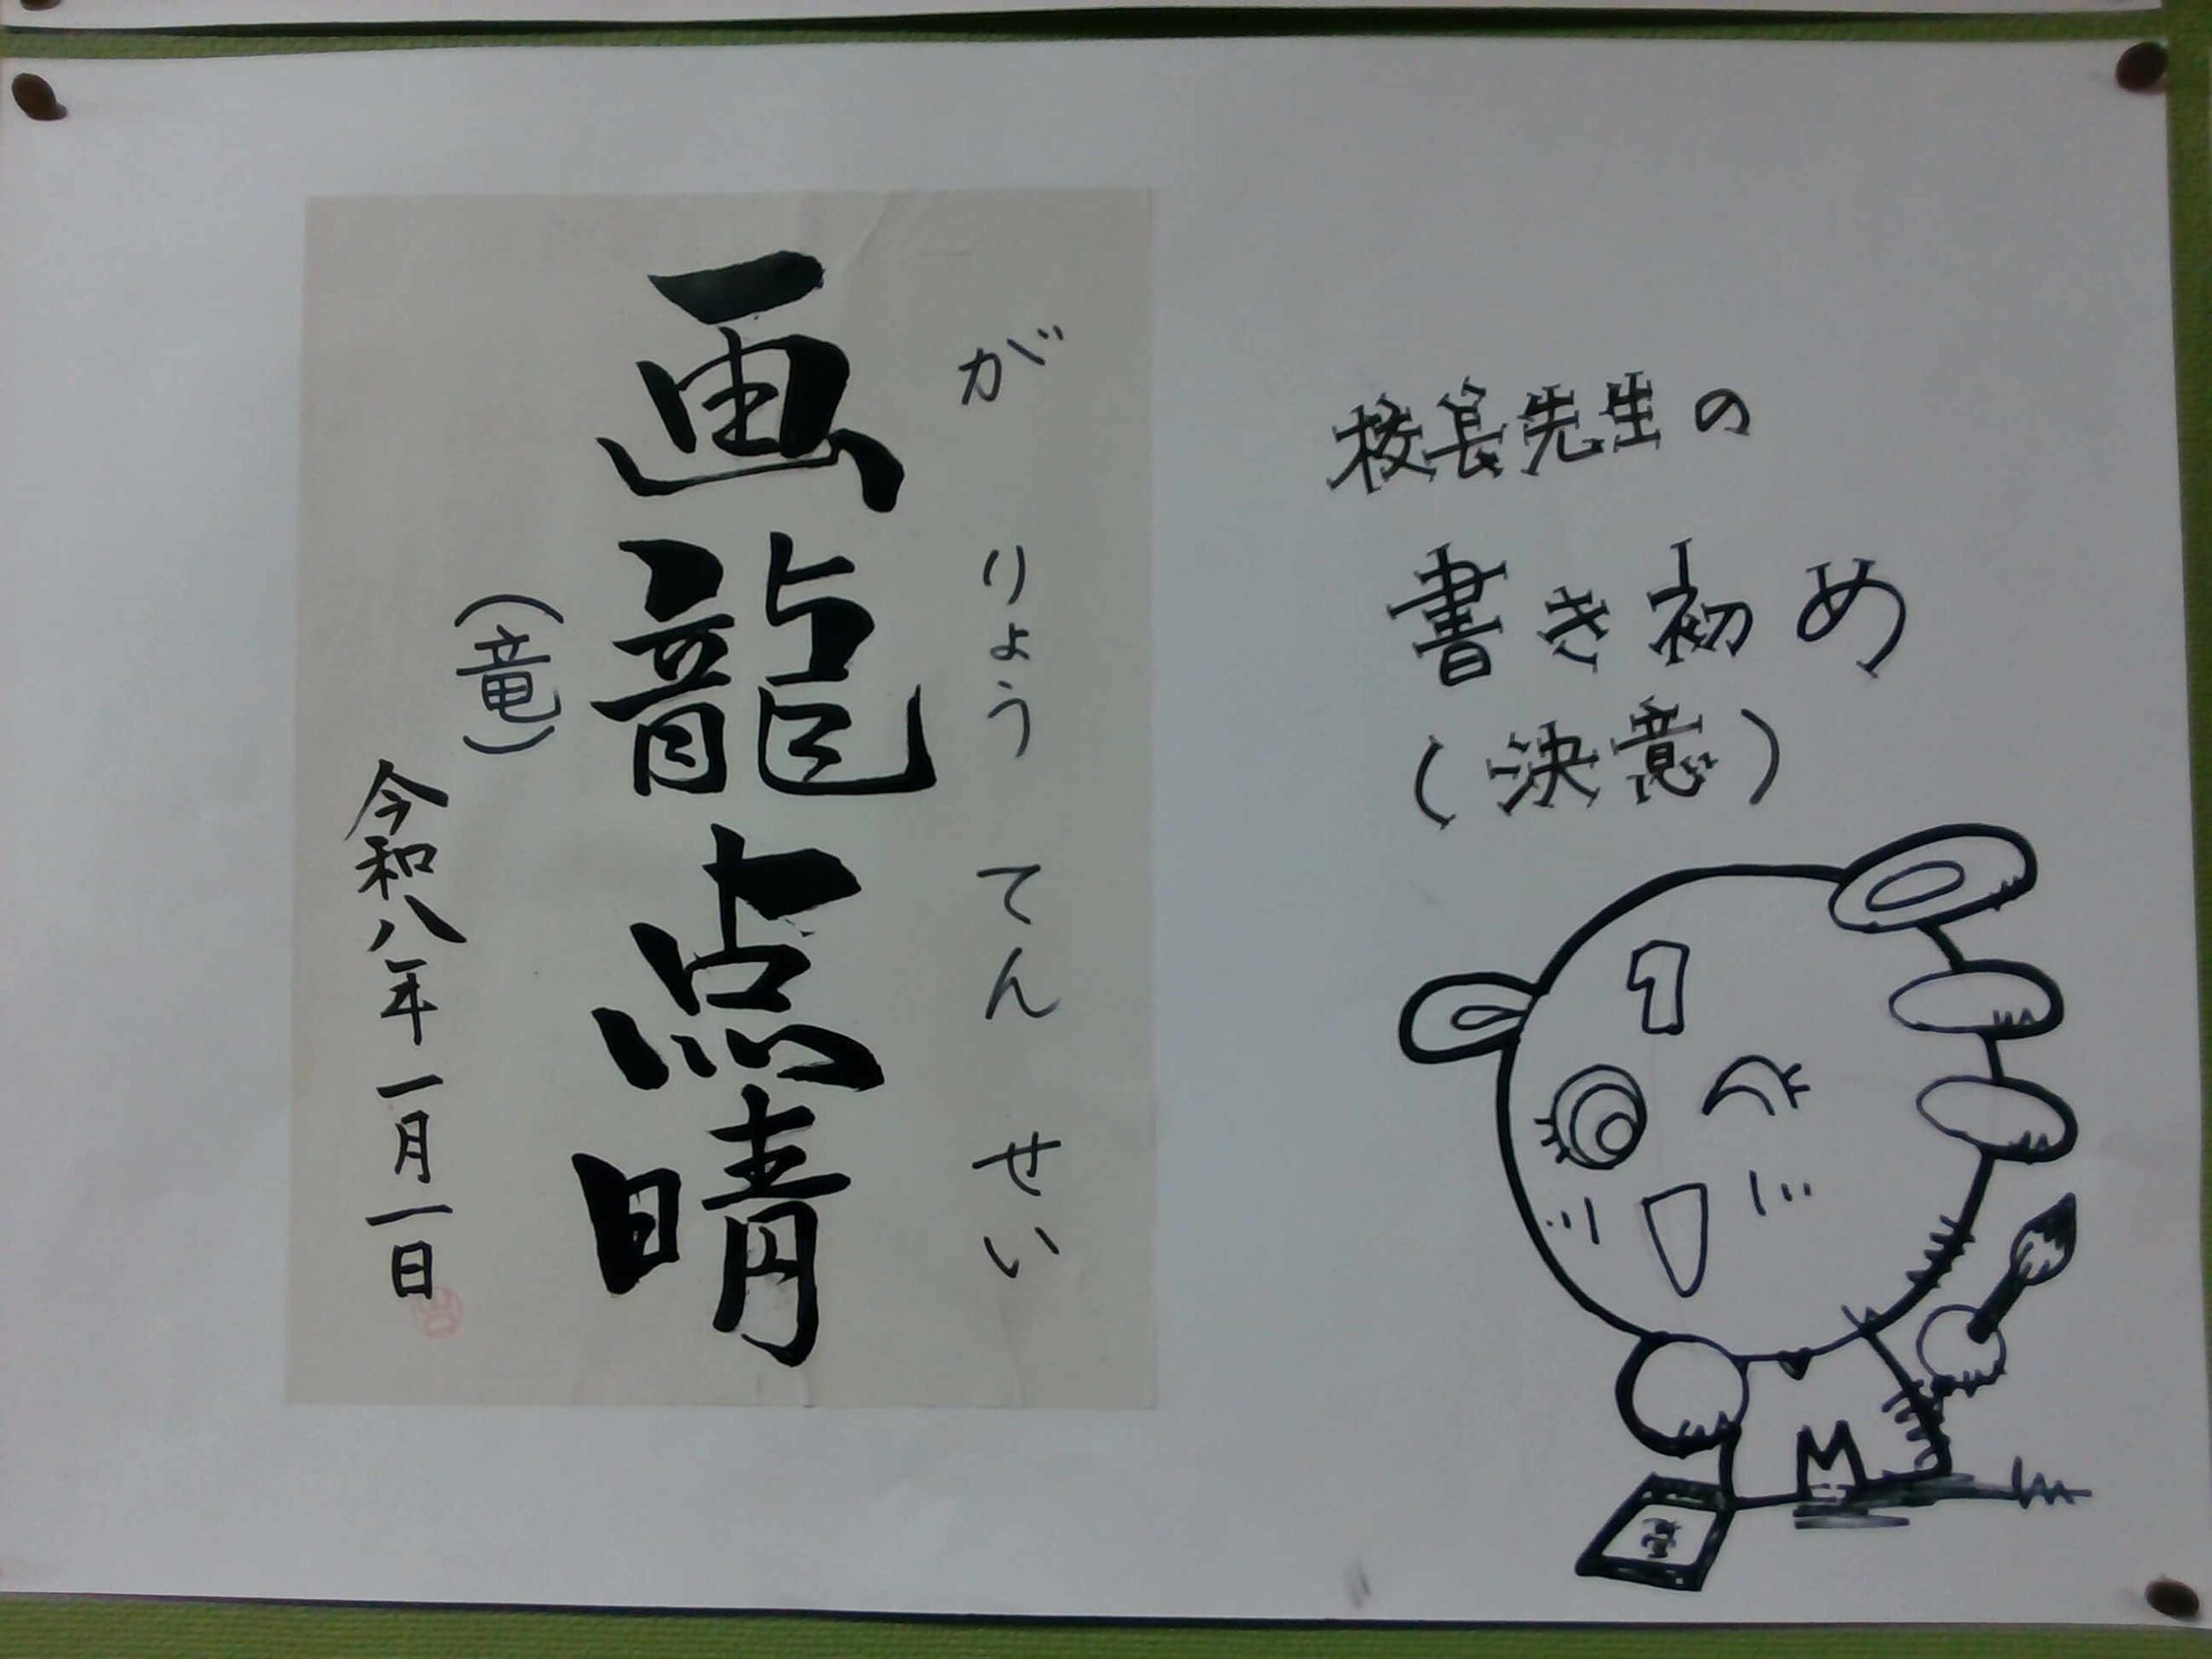 校長先生の
書き初め
(決意)
がりょうてんせい
画龍点晴
(竜)
令和八年一月一日
1
M